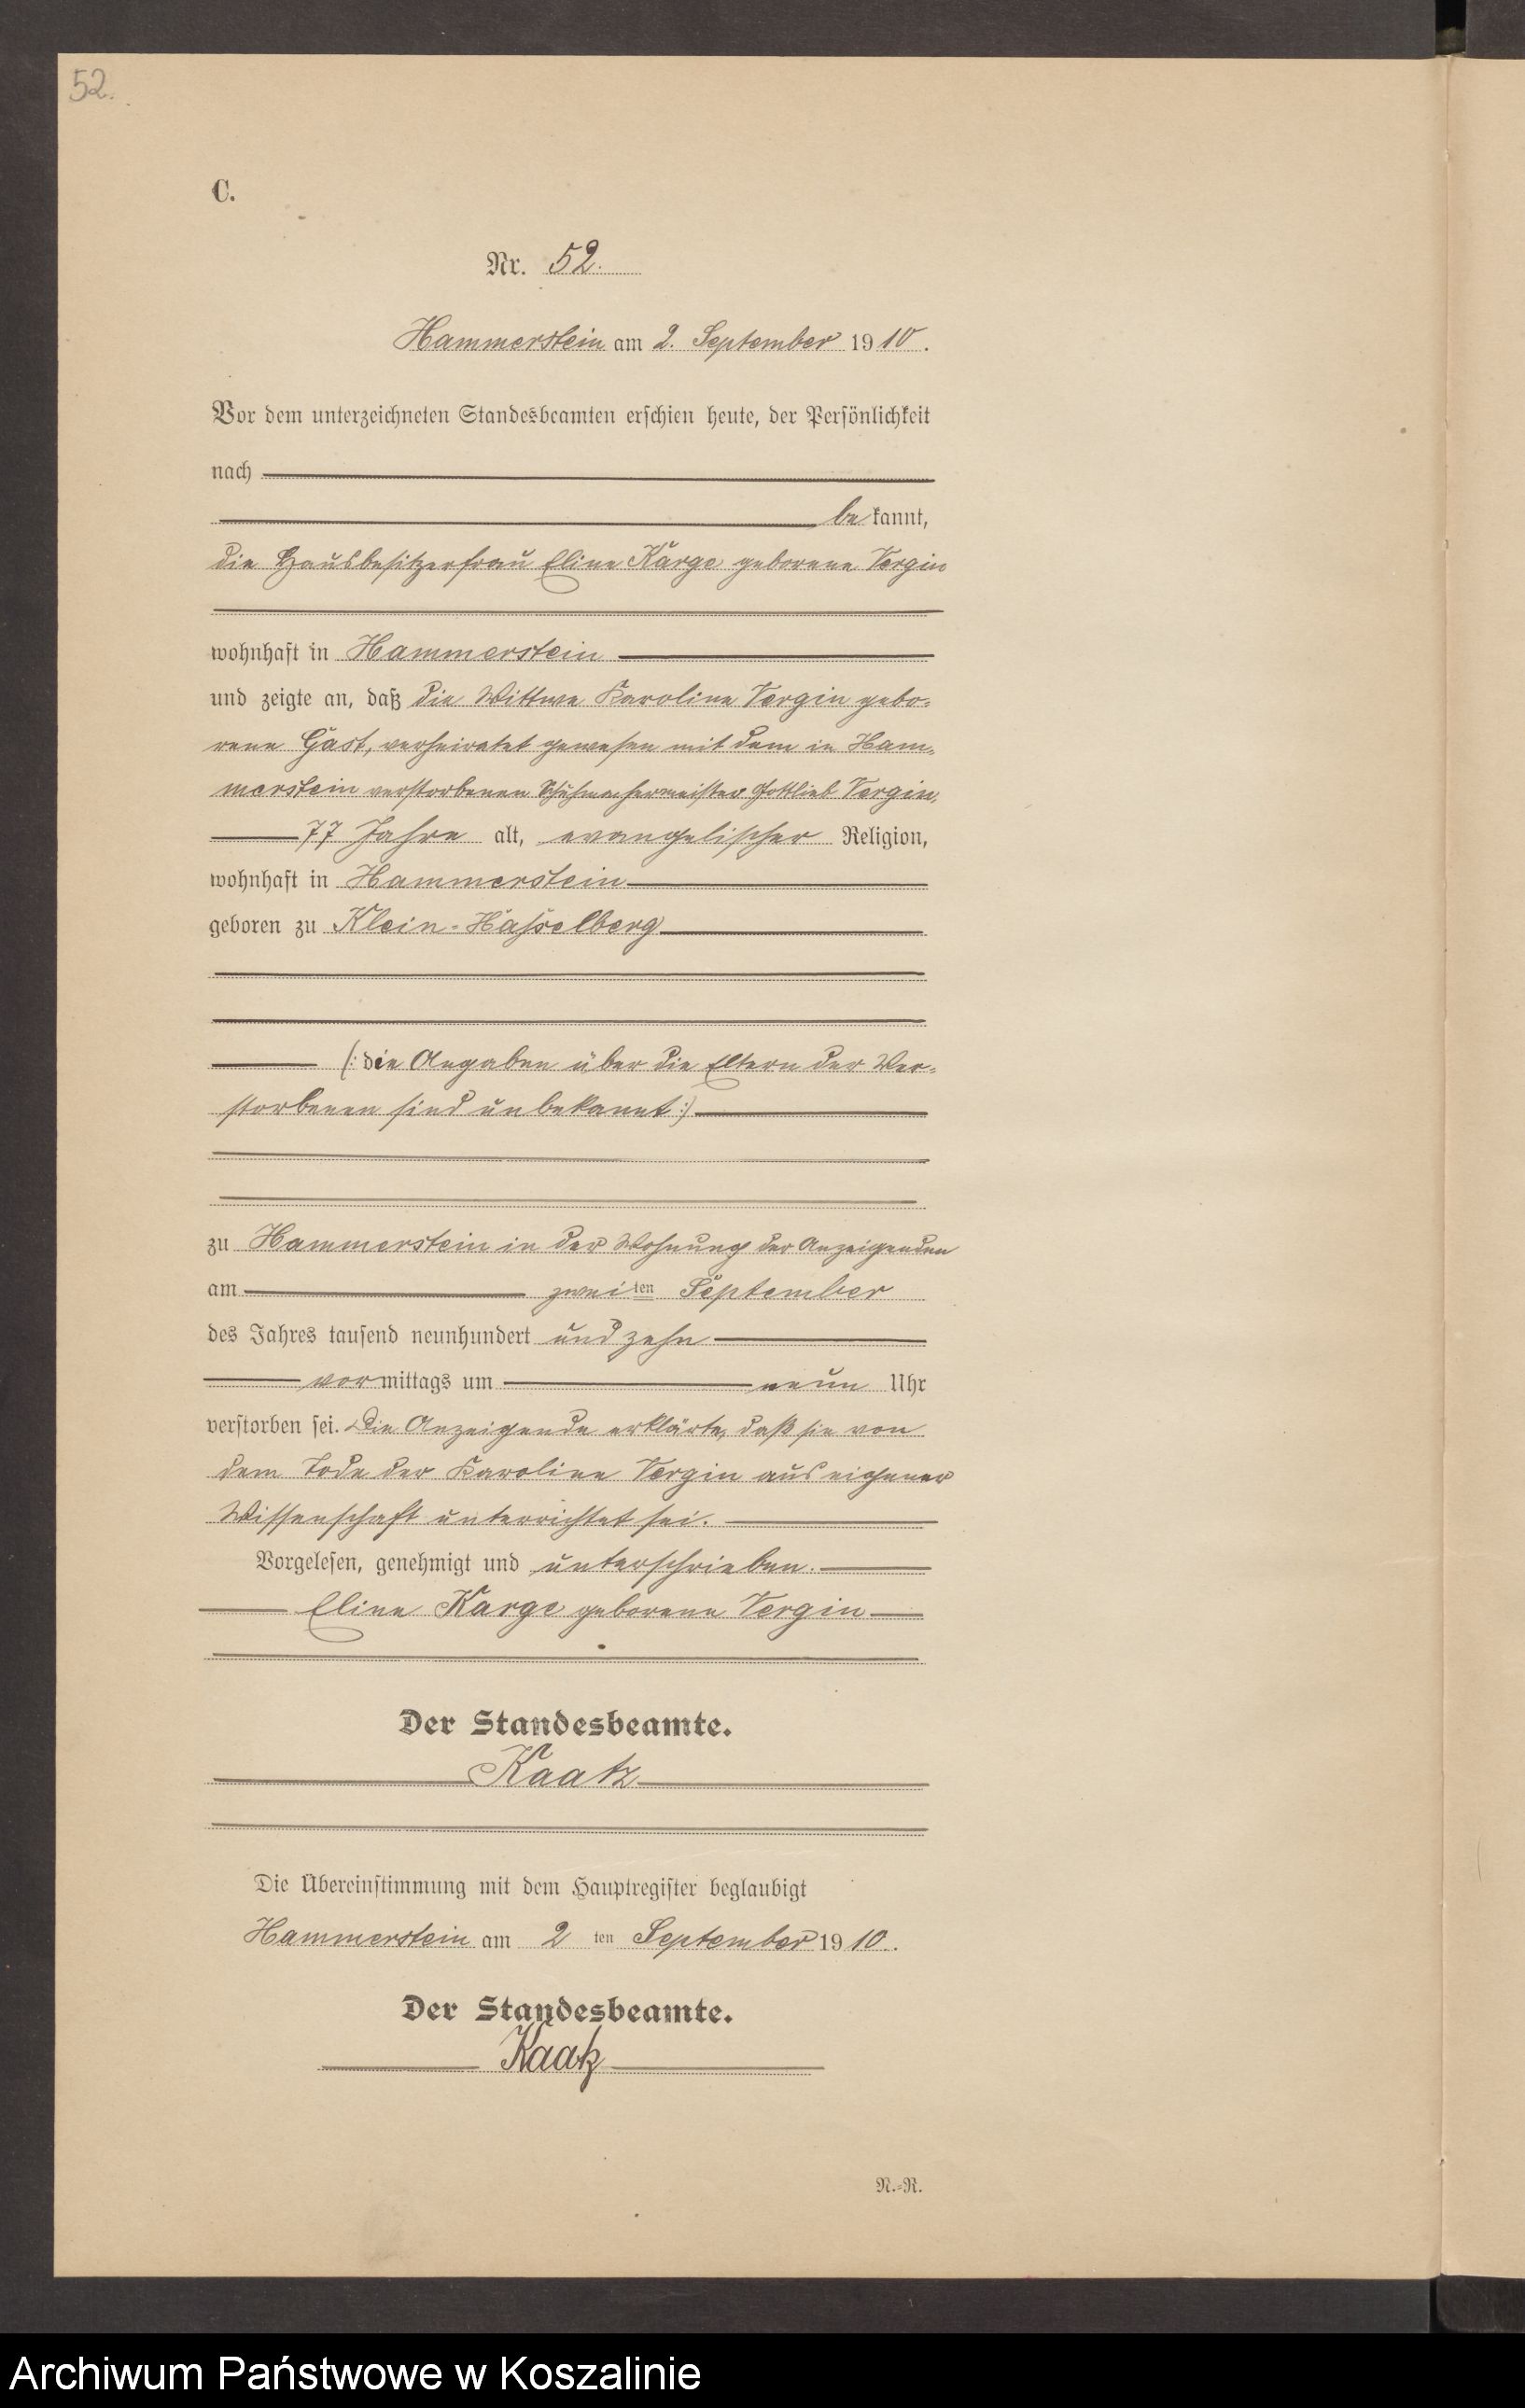 52.
C.
Nr. 52.
Hammerstein am 2. September 1910.
Vor dem unterzeichneten Standesbeamten erschien heute, der Persönlichkeit
nach
bekannt,
die Hausbesitzerfrau Eline Karge geborene Vergin
wohnhaft in Hammerstein
und zeigte an, daß die Wittwe Karoline Vergin gebo-
rene Gast, verheiratet gewesen mit dem in Ham-
merstein verstorbenen Schuhmachermeister Gottlieb Vergin,
77 Jahre alt, evangelischer Religion,
wohnhaft in Hammerstein
geboren zu Klein-Hasselberg
(: die Angaben über die Eltern der Ver-
storbenen sind unbekannt :)
zu Hammerstein in der Wohnung der Anzeigenden
am zweiten September
des Jahres tausend neunhundert und zehn
vormittags um neun Uhr
verstorben sei. Die Anzeigende erklärte, daß sie von
dem Tode der Karoline Vergin aus eigener
Wissenschaft unterrichtet sei.
Vorgelesen, genehmigt und unterschrieben.
Eline Karge geborene Vergin
Der Standesbeamte.
Kaatz
Die Übereinstimmung mit dem Hauptregister beglaubigt
Hammerstein am 2 ten September 1910.
Der Standesbeamte.
Kaatz
N.-R.
Archiwum Państwowe w Koszalinie